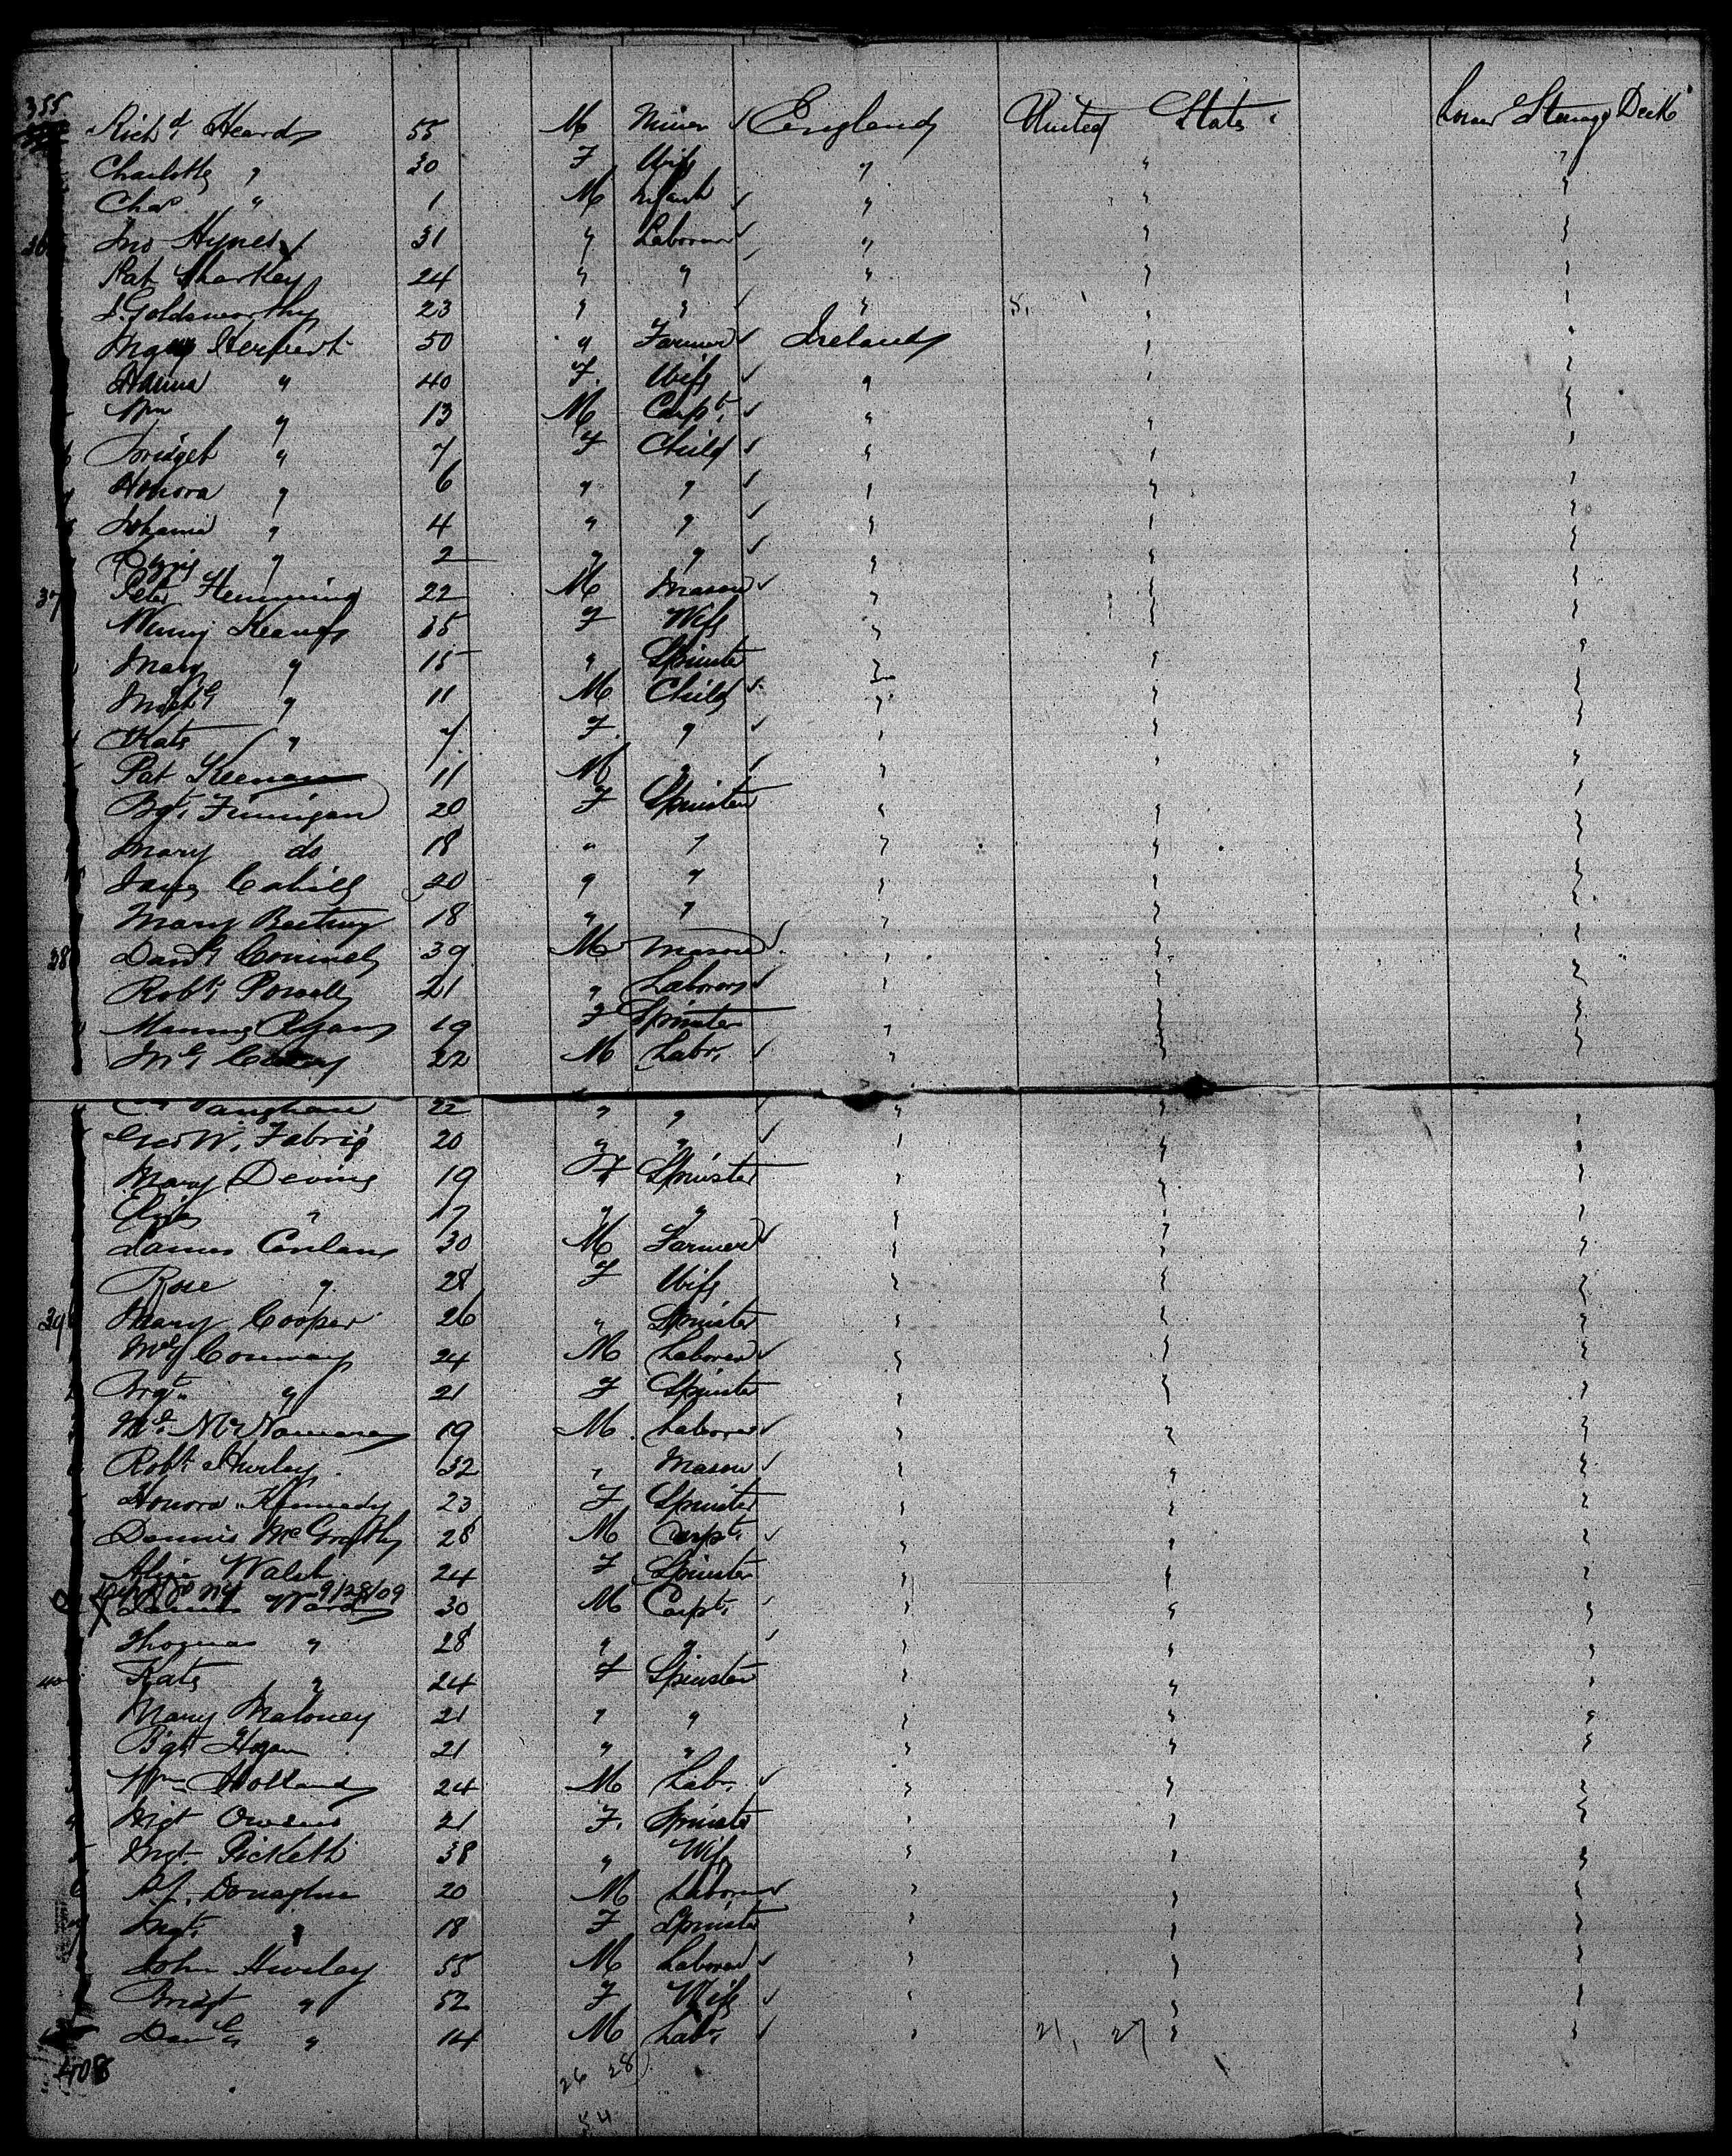 355
Richd. Heard 55 M Miner ✓ England United States Lower Steerage Deck
Charlotte " 30 F Wife " " "
Chas " 1 M Infant ✓ " " "
36 Jno Hynes 31 " Laborer ✓ " " "
Pat Sharkey 24 " " " " "
J. Goldsworthy 23 " " ✓ " 5, " "
50 " Farmer ✓ Ireland " "
" 40 F. Wife ✓ " " "
Wm " 13 M Carpt. ✓ " " "
Bridget " 7 F Child ✓ " " "
Honora " 6 " " ✓ " " "
Johanna " 4 " " ✓ " " "
" 2 " " ✓ " " "
37 Peter Flemming 22 M Mason ✓ " " "
Keane 35 F Wife " " "
Mary " 15 " Spinster " " "
Michl " 11 M Child ✓ " " "
Kate " 7 F. " ✓ " " "
Pat Keenan 11 M " ✓ " " "
Bgt. Finnigan 20 F Spinster " " "
Mary do 18 " " " " "
Jane Cahill 20 " " " " "
Mary 18 " " " " "
38 Danl 39 M Mason ✓ " " "
Robt. Powell 21 " Laborer ✓ " " "
Ryan 19 F Spinster " " "
Ml Casey 22 M Labr. ✓ " " "
Vaughan 22 " " ✓ " " "
Geo W. 20 " " ✓ " " "
Mary Devine 19 F Spinster " " "
Eliza " 17 " " " " "
James Conlan 30 M Farmer ✓ " " "
Rose " 28 F Wife " " "
39 Mary Cooper 26 " Spinster " " "
Ml Conway 24 M Laborer ✓ " " "
Brgt. " 21 F Spinster " " "
Ml. McNamara 19 M. Laborer ✓ " " "
Robt. Hurley 32 " Mason ✓ " " "
Honora Kennedy 23 F Spinster " " "
Dennis McGrath 28 M Carpt. ✓ " " "
Alice Walsh 24 F Spinster " " "
NY 9/28/09
X James Ward 30 M Carpt. ✓ " " "
Thomas " 28 " " ✓ " " "
40 Kate " 24 F Spinster " " "
Mary Maloney 21 " " " " "
Bgt Hogan 21 " " " " "
Wm Holland 24 M Labr. ✓ " " "
Mgt Owens 21 F. Spinster " " "
Mgt Pickett 38 " Wife " " "
Donaghue 20 M Laborer ✓ " " "
Mgt. " 18 F Spinster " " "
John Hurley 55 M Laborer ✓ " " "
Bridgt " 52 F Wife ✓ " " "
Danl " 14 M Labr. ✓ " 21, 27 " "
408
26 28
54